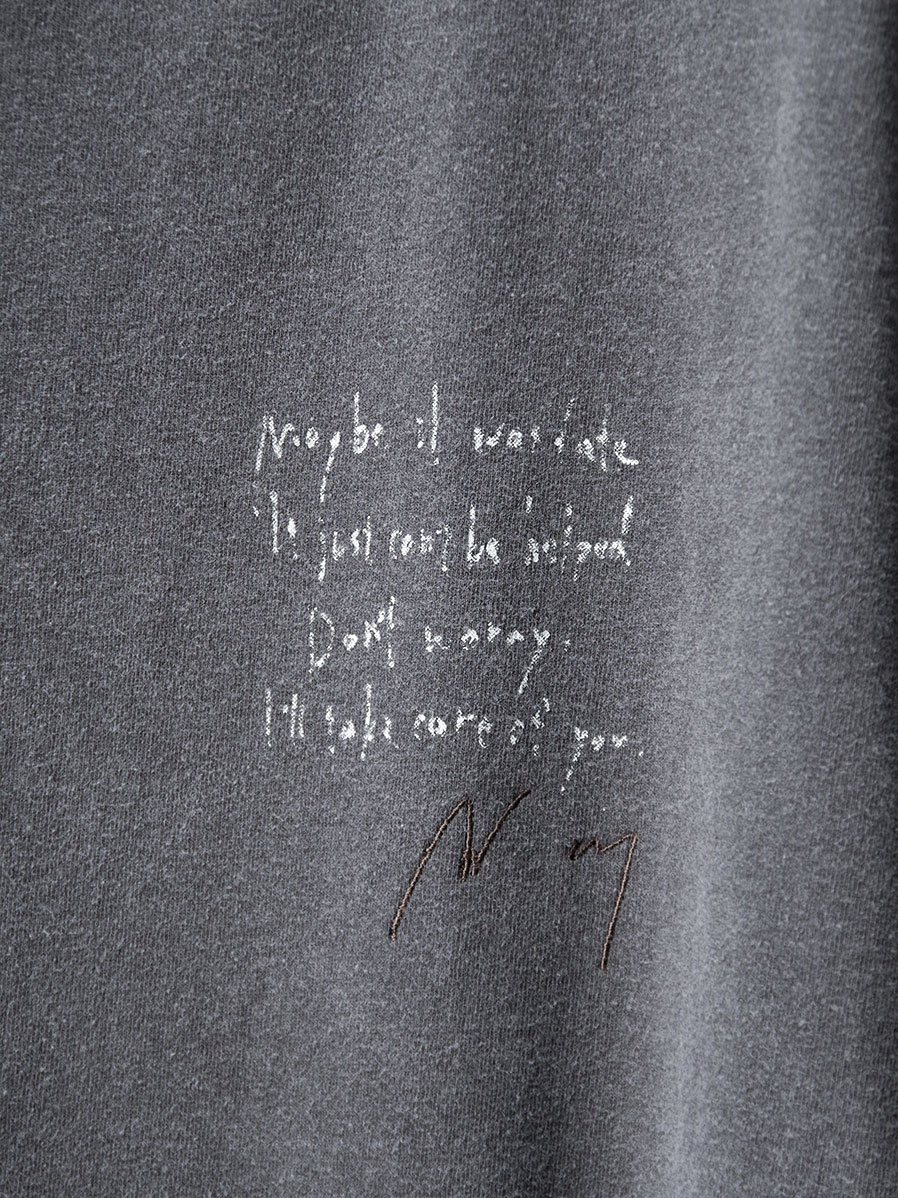 Maybe it was late
It just can't be helped
Don't worry.
I'll take care of you.